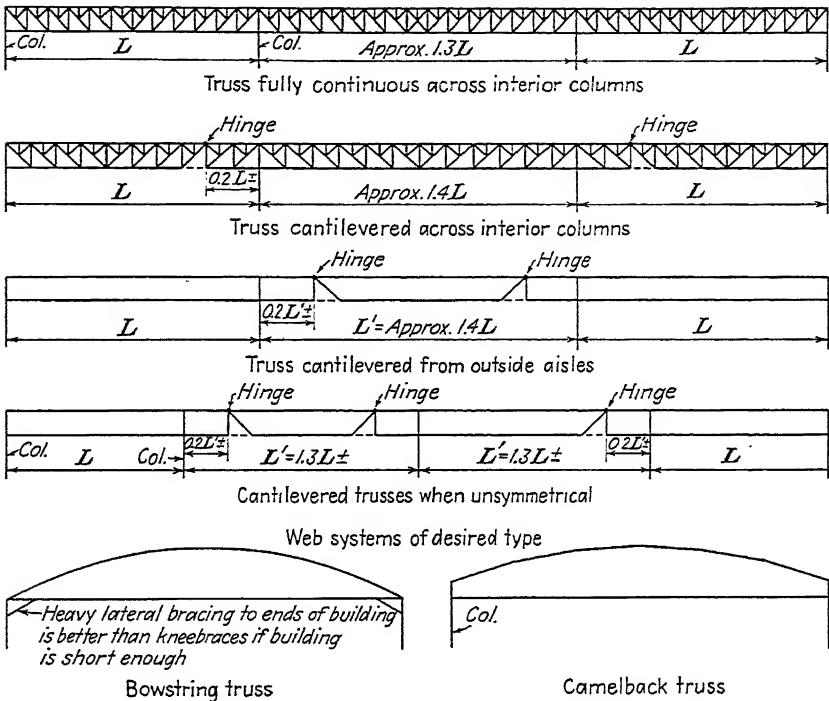 Col.
L
Col.
Approx. 1.3L
L
Truss fully continuous across interior columns
Hinge
Hinge
0.2L±
L
Approx. 1.4L
L
Truss cantilevered across interior columns
Hinge
Hinge
0.2L'±
L
L'=Approx. 1.4L
L
Truss cantilevered from outside aisles
Hinge
Hinge
Hinge
Col.
L
Col.
0.2L'±
L'=1.3L±
L'=1.3L±
0.2L'±
L
Cantilevered trusses when unsymmetrical
Web systems of desired type
Heavy lateral bracing to ends of building
is better than kneebraces if building
is short enough
Col.
Bowstring truss
Camelback truss